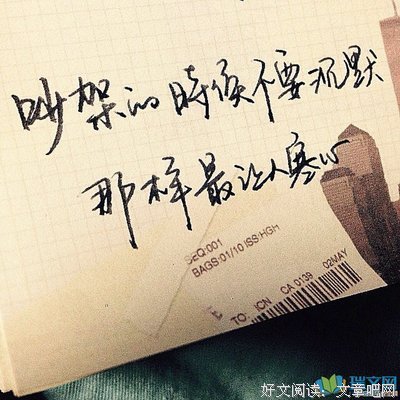 吵架的時候不要沉默
那样最让人寒心
SEQ:001
BAGS:01/10 ISS:HGH
CA 0139 02MAY
好文阅读：文章吧网
瑞文网